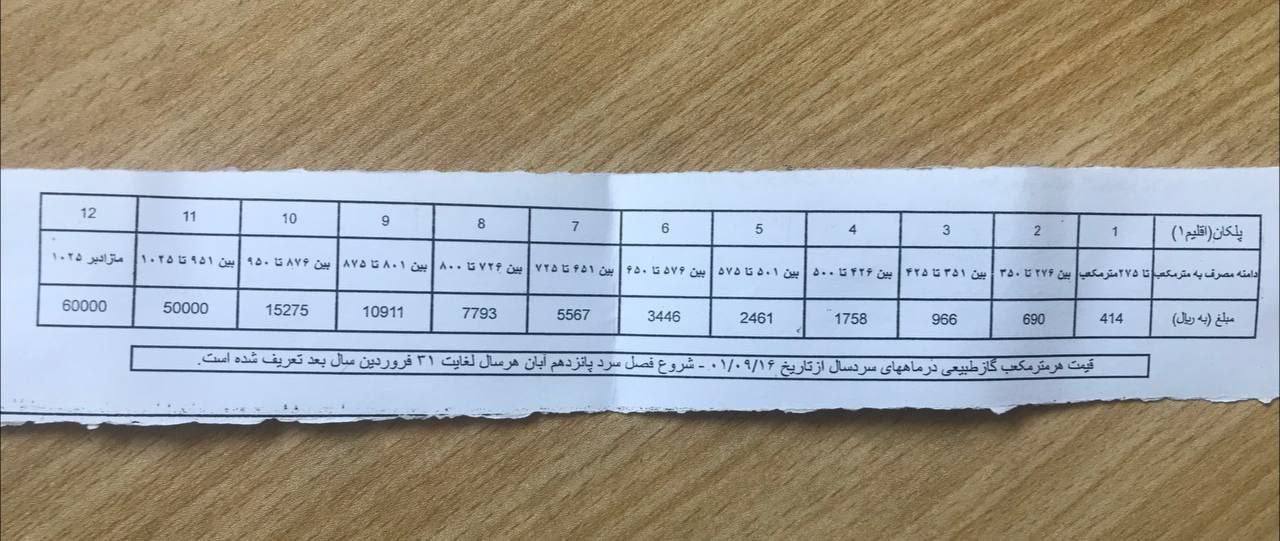 پلکان(اقلیم۱) 1 2 3 4 5 6 7 8 9 10 11 12
دامنه مصرف به مترمکعب تا ۲۷۵مترمکعب بین ۲۷۶ تا ۳۵۰ بین ۳۵۱ تا ۴۲۵ بین ۴۲۶ تا ۵۰۰ بین ۵۰۱ تا ۵۷۵ بین ۵۷۶ تا ۶۵۰ بین ۶۵۱ تا ۷۲۵ بین ۷۲۶ تا ۸۰۰ بین ۸۰۱ تا ۸۷۵ بین ۸۷۶ تا ۹۵۰ بین ۹۵۱ تا ۱۰۲۵ مازادبر ۱۰۲۵
مبلغ (به ریال) 414 690 966 1758 2461 3446 5567 7793 10911 15275 50000 60000
قیمت هرمترمکعب گازطبیعی درماههای سردسال ازتاریخ ۰۱/۰۹/۱۶ - شروع فصل سرد پانزدهم آبان هرسال لغایت ۳۱ فروردین سال بعد تعریف شده است.